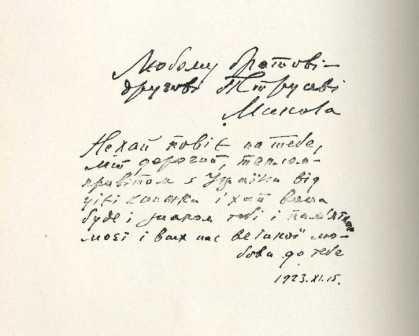 Любому братові-
другові Петрусеві
Микола
Нехай повіє на тебе,
мій дорогий, теплом-
привітом з України від
цієї книжки і хай вона
буде і знаком тобі і пам'яткою
моєї і всіх нас великої лю-
бови до тебе
1923.XI.15.